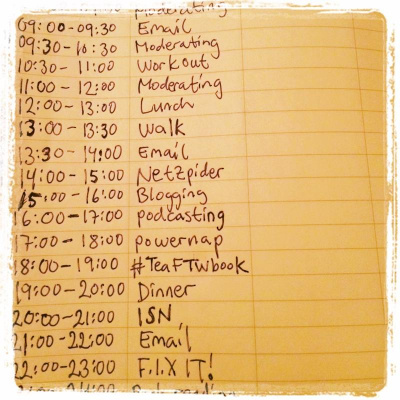 Moderating
09:00-09:30 Email
09:30-10:30 Moderating
10:30-11:00 Workout
11:00-12:00 Moderating
12:00-13:00 Lunch
13:00-13:30 Walk
13:30-14:00 Email
14:00-15:00 Netzpider
15:00-16:00 Blogging
16:00-17:00 podcasting
17:00-18:00 powernap
18:00-19:00 #TeaFTWbook
19:00-20:00 Dinner
20:00-21:00 ISN
21:00-22:00 Email
22:00-23:00 F.I.X IT!